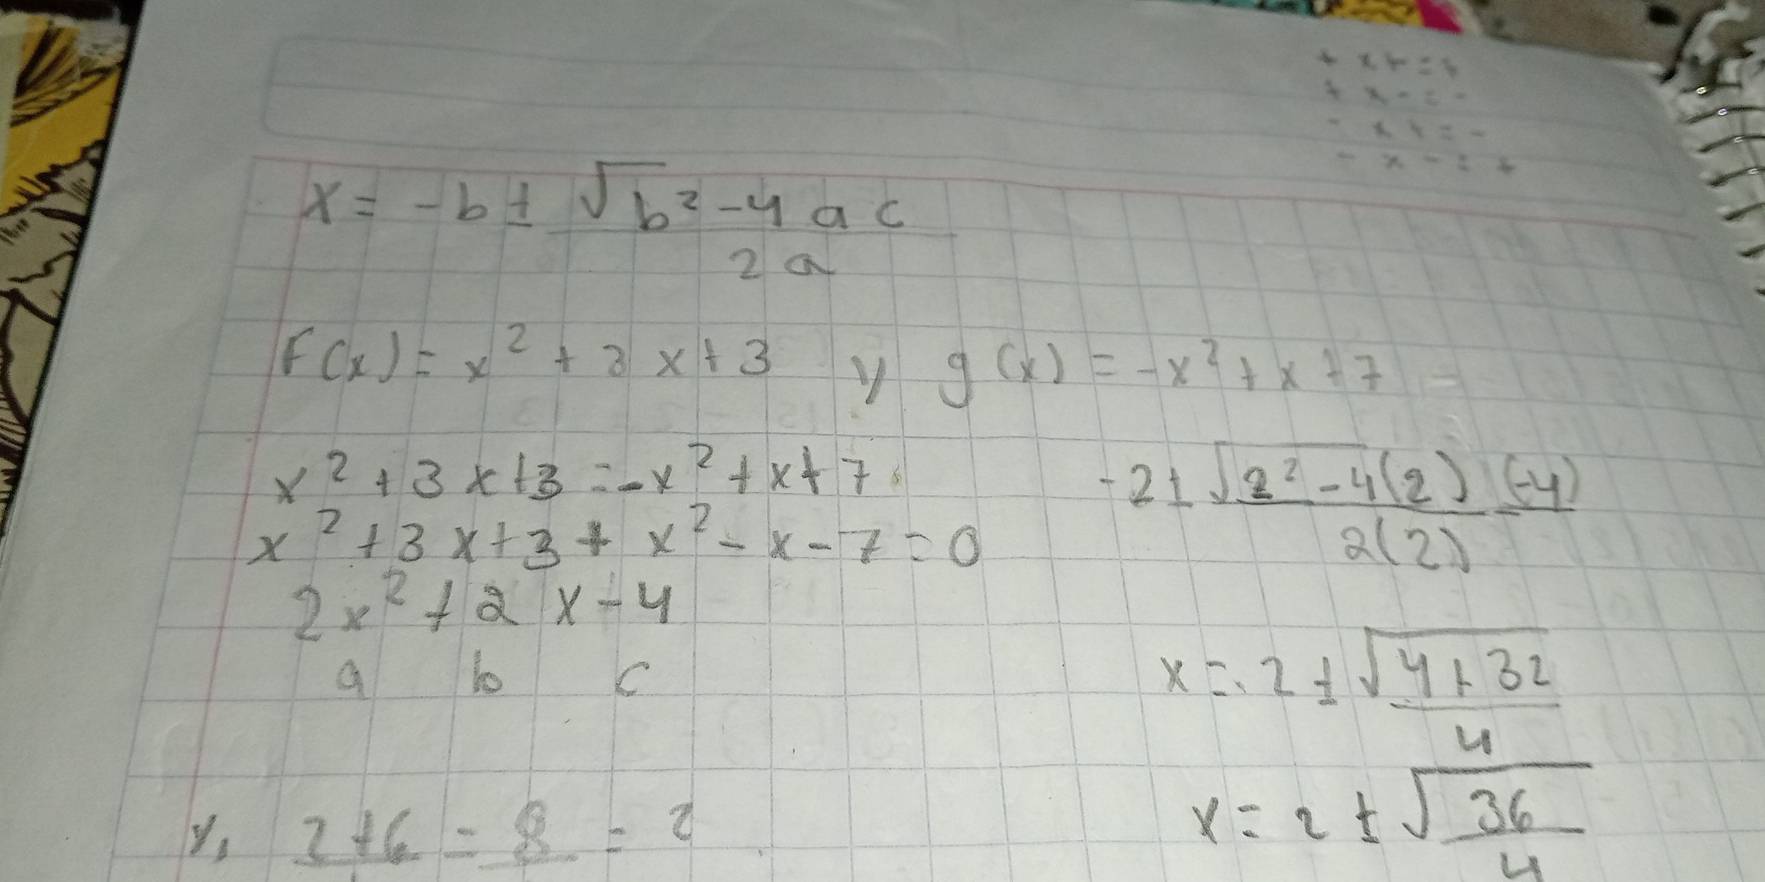 + x + = +
+ x - = -
- x + = -
- x - = +
x = -b ± √b² - 4 a c
2 a
F(x) = x² + 3 x + 3 y g(x) = -x² + x + 7
x² + 3 x + 3 = -x² + x + 7
x² + 3 x + 3 + x² - x - 7 = 0
2x² + 2 x - 4
a b c
-2 ± √2² - 4(2) (-4)
2(2)
x = -2 ± √4 + 32
4
x = 2 ± √36
4
2 + 6 = 8 = 2